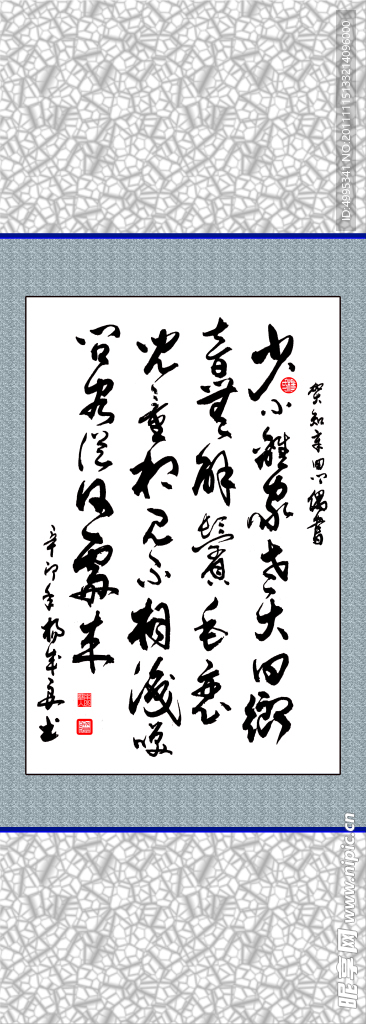 贺知章回乡偶書
少小離家老大回鄉
音無解鬢毛衰
兒童相見不相識笑
问客從何處来
辛卯年楊书
ID:4995341 NO:20111115133214096000
昵享网 www.nipic.cn